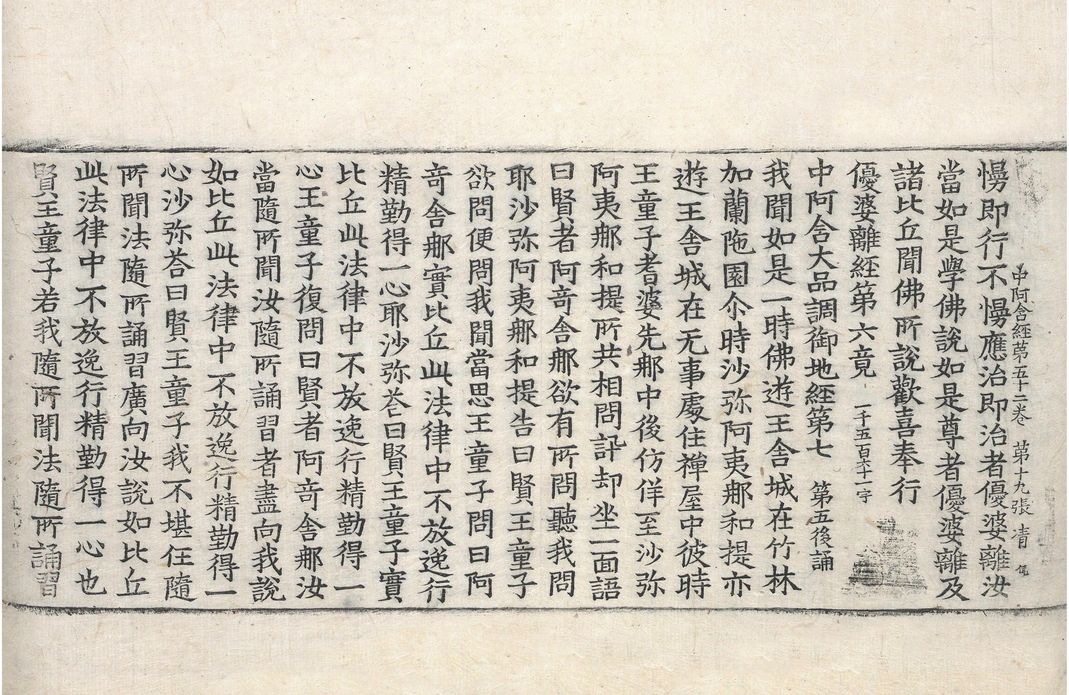 中阿含經第五十二卷 第十九張 清
慢即行不慢應治即治者優婆離汝
當如是學佛說如是尊者優婆離及
諸比丘聞佛所說歡喜奉行
優婆離經第六竟 一千五百六十一字
中阿含大品調御地經第七 第五後誦
我聞如是一時佛遊王舍城在竹林
加蘭陁園尒時沙弥阿夷那和提亦
遊王舍城在无事處住禪屋中彼時
王童子耆婆先那中後仿佯至沙弥
阿夷那和提所共相問訊却坐一面語
曰賢者阿奇舍那欲有所問聽我問
耶沙弥阿夷那和提告曰賢王童子
欲問便問我聞當思王童子問曰阿
奇舍那實比丘此法律中不放逸行
精勤得一心耶沙弥荅曰賢王童子實
比丘此法律中不放逸行精勤得一
心王童子復問曰賢者阿奇舍那汝
當隨所聞汝隨所誦習者盡向我說
如比丘此法律中不放逸行精勤得一
心沙弥荅曰賢王童子我不堪任隨
所聞法隨所誦習廣向汝說如比丘
此法律中不放逸行精勤得一心也
賢王童子若我隨所聞法隨所誦習